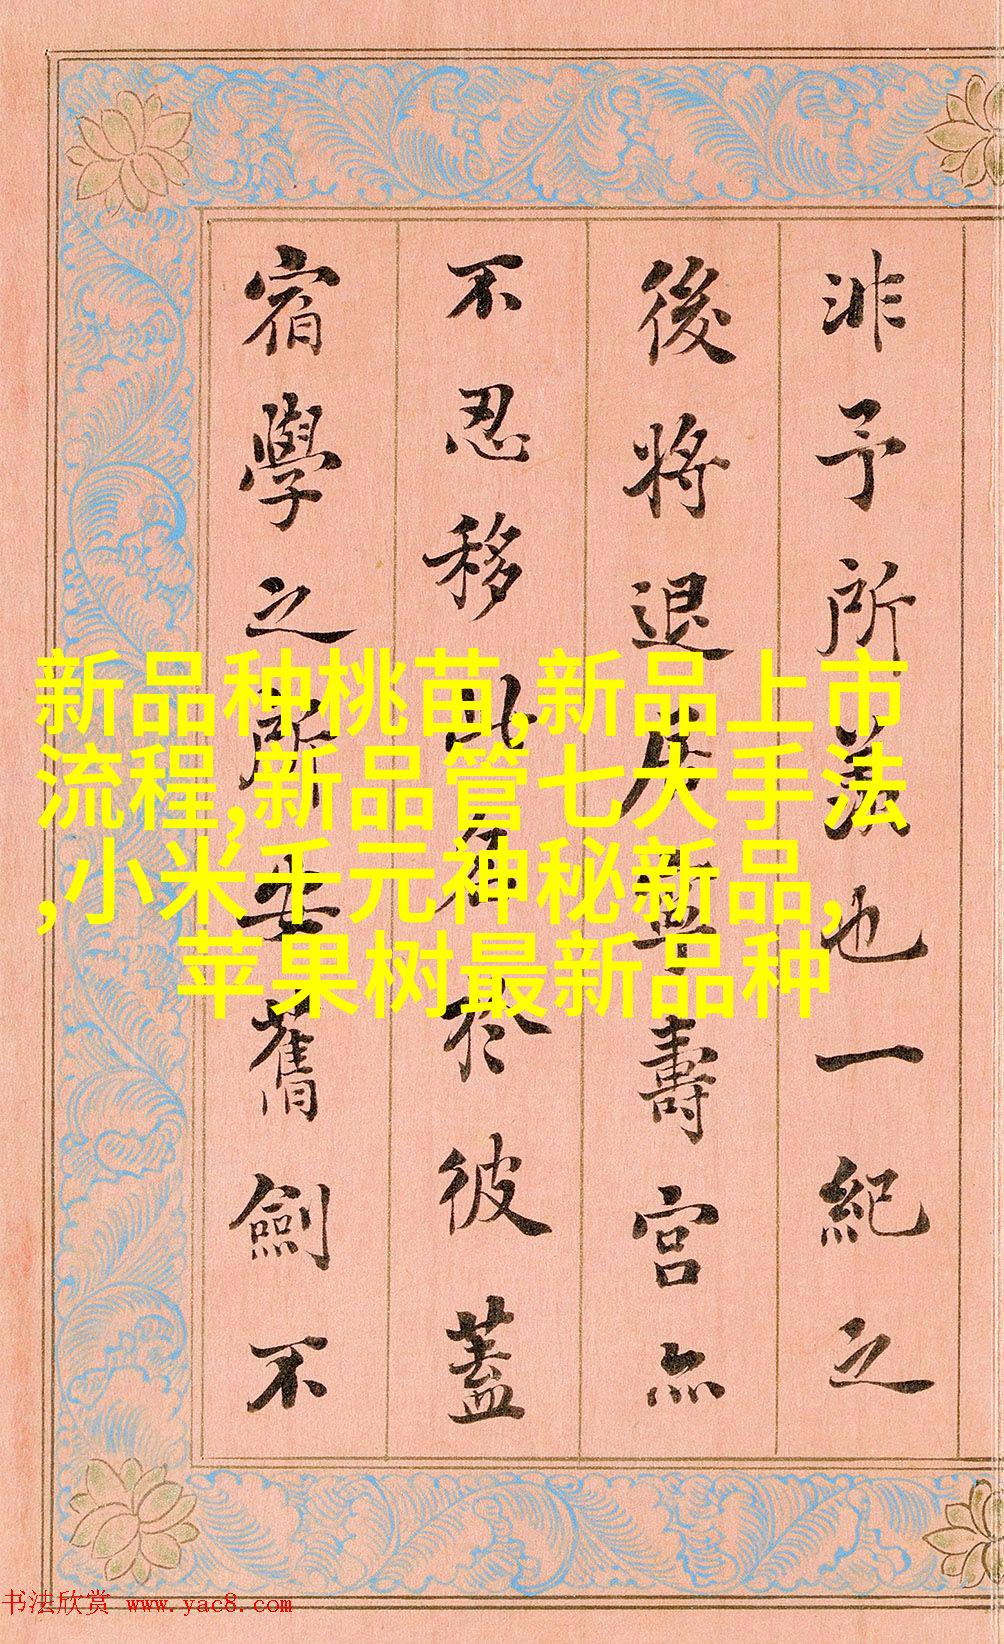 非予所羨也一紀之
後將退居壽宮亦
不忍移此名於彼蓋
宿學之所安舊劍不
新品种桃苗,新品上市
流程,新品管七大手法
,小米千元神秘新品,
苹果树最新品种
书法欣赏 www.yac8.com